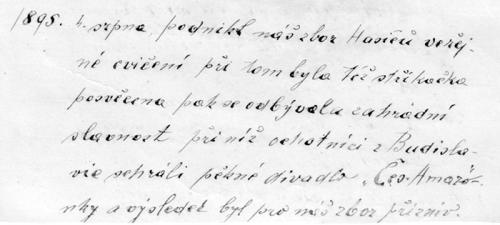 1895. 4. srpna, podnikl náš zbor Hasičů veřej-
né cvičení při tom byla též stříkačka
posvěcena pak se odbývala zahrádní
slavnost při níž ochotníci z Budisla-
vie sehráli pěkné divadlo „Čes. Amazó-
nky a výsledek byl pro náš zbor přízniv.